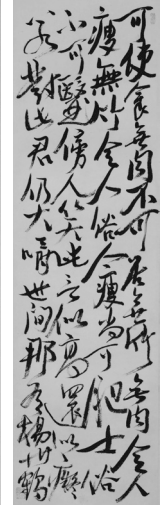 可使食無肉不可居無竹無肉令人
瘦無竹令人俗人瘦尚可肥士俗
不可醫傍人笑此言似高還似癡
若對此君仍大嚼世間那有揚州鶴